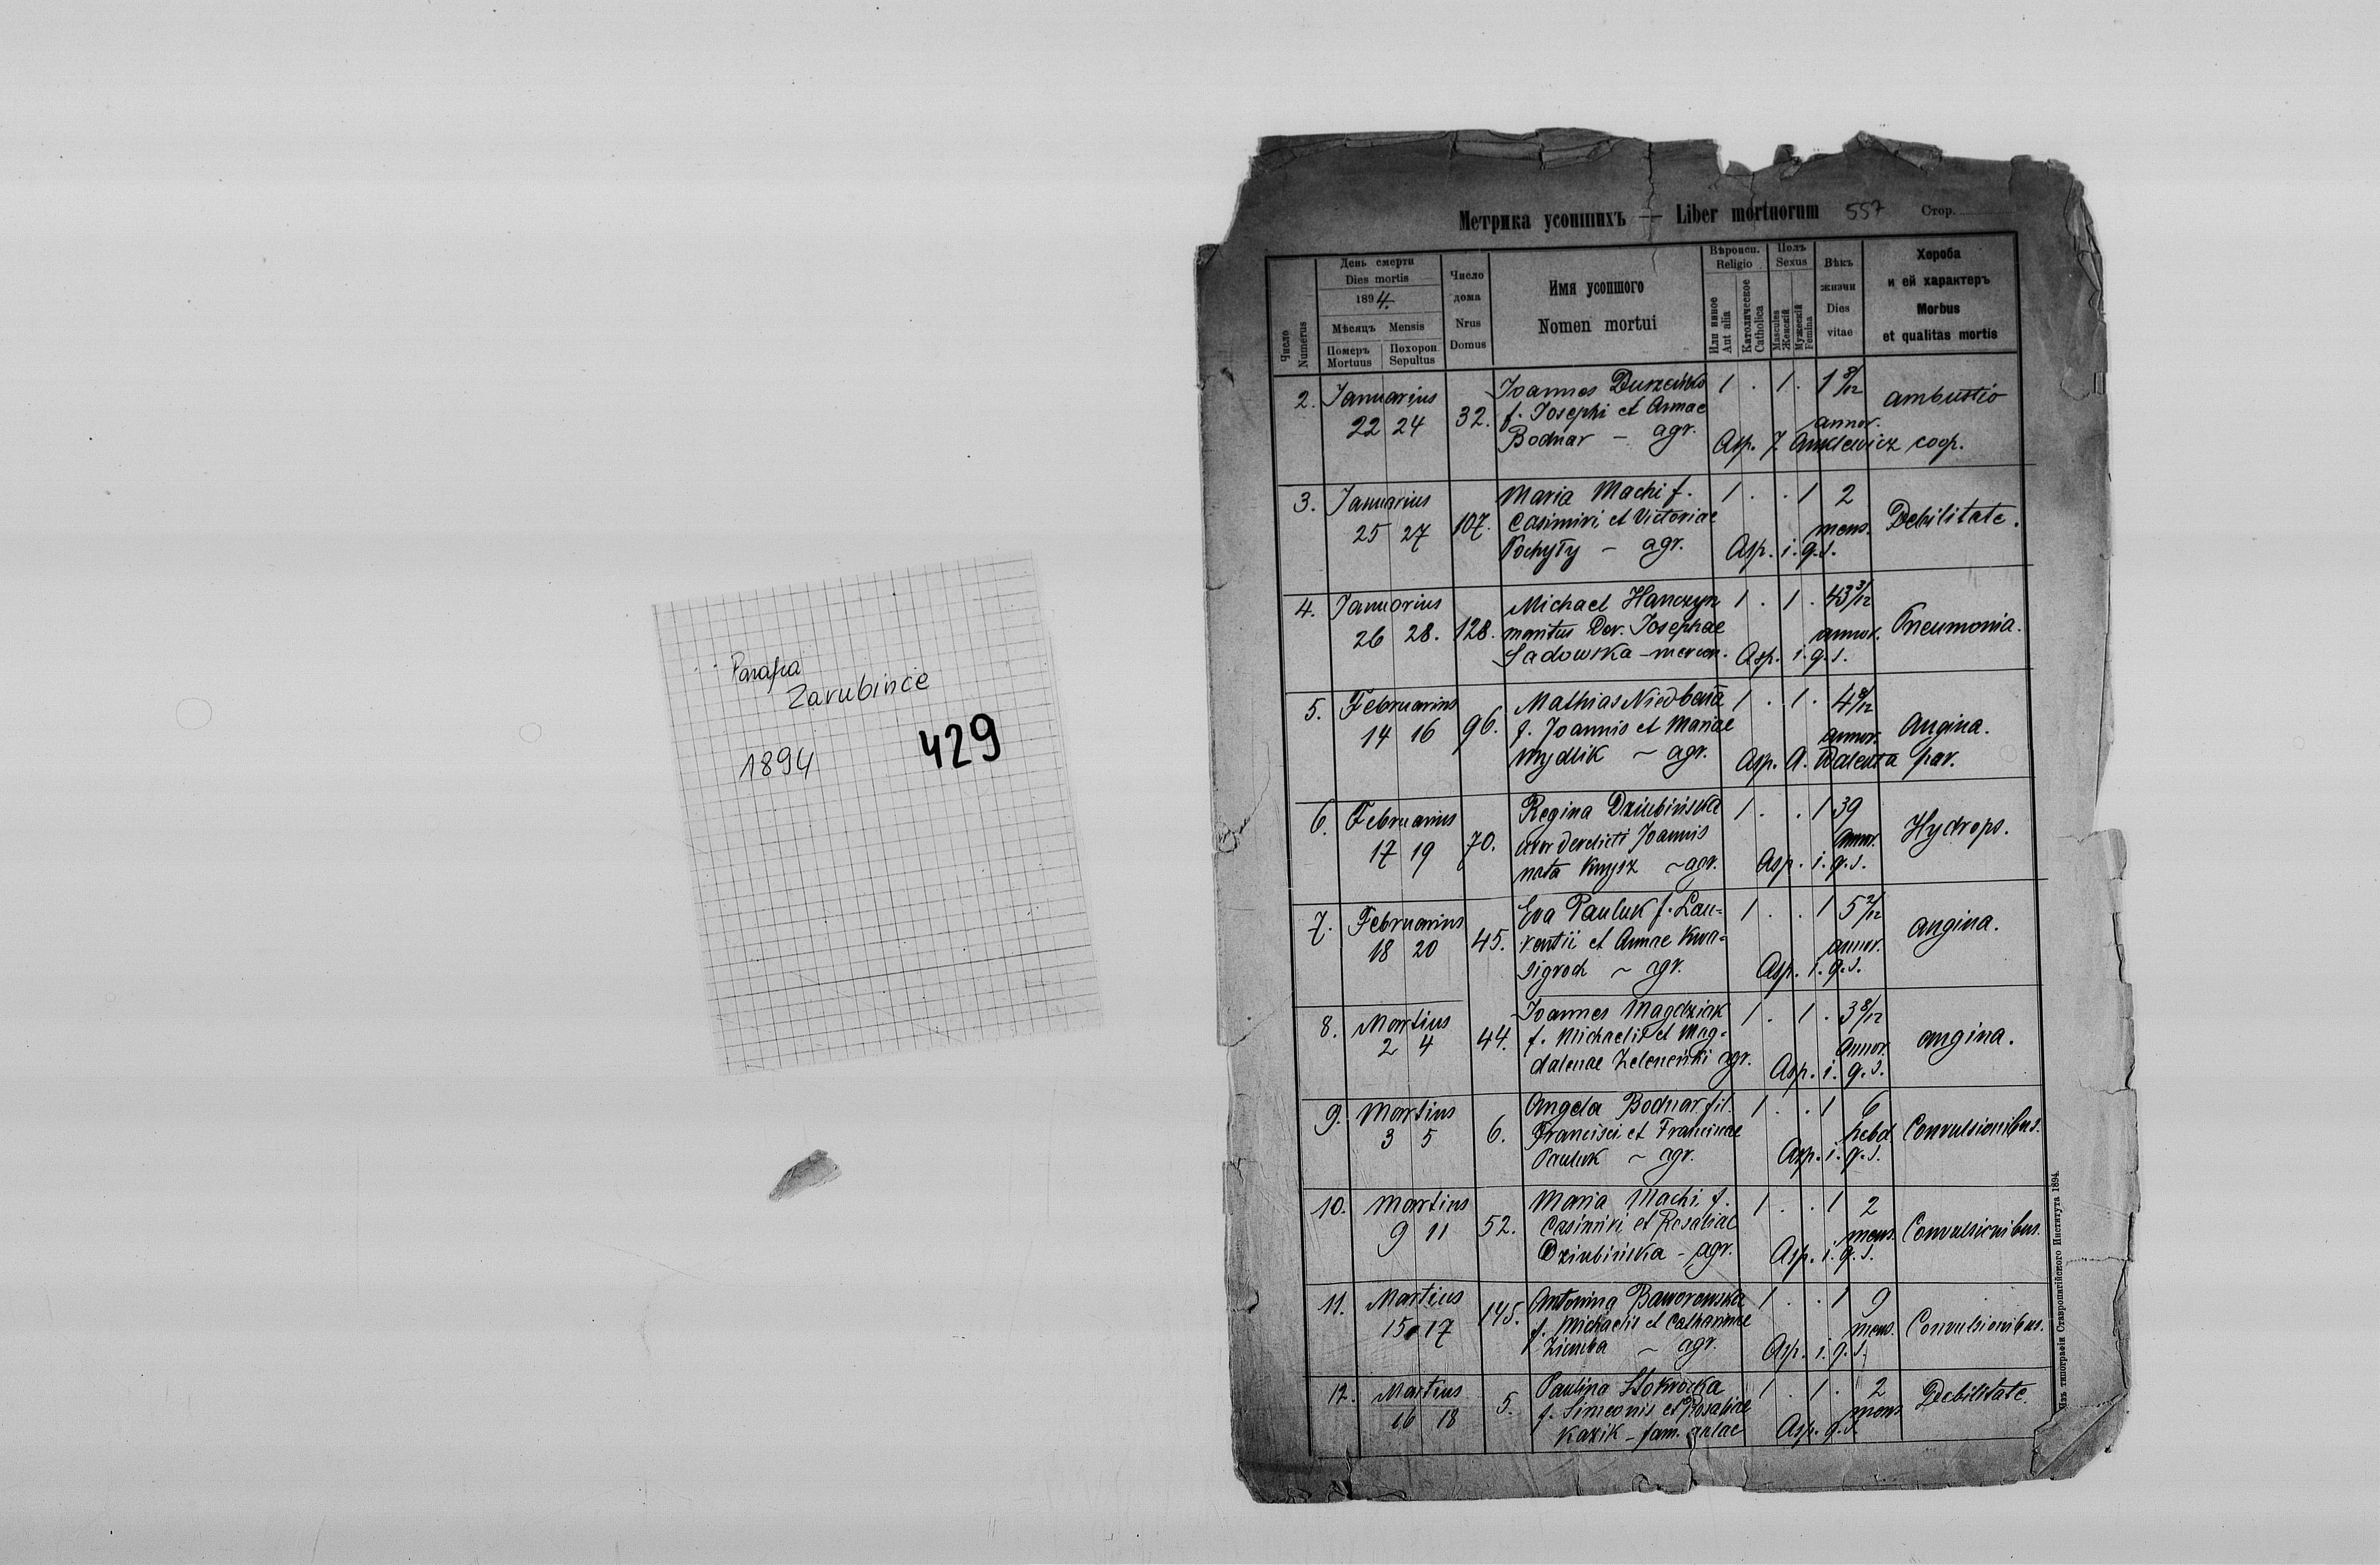 Parafia
Zarubińce
1894
429
Метрика усопшихъ — Liber mortuorum 557 Стор.
Число
Numerus
День смерти
Dies mortis
1894.
Мѣсяцъ Mensis
Померъ Похорон
Mortuus Sepultus
Число
дома
Nrus
Domus
Имя усопшого
Nomen mortui
Вѣроисп.
Religio
Или инное
Aut alia
Католическое
Catholica
Полъ
Sexus
Masculus
Женскій
Мужескій
Femina
Вѣкъ
жизни
Dies
vitae
Хороба
и ей характеръ
Morbus
et qualitas mortis
2. Januarius
22 24
32.
Joannes
f. Josephi et Annae
Bodnar — agr.
1 . 1 . 1 8/12
annor.
ambustio
Asp. J. coop.
3. Januarius
25 27
107.
Maria Machi f.
Casimiri et Victoriae
Pochyły — agr.
1 . . 1 2
mens.
Debilitate.
Asp. i. q. s.
4. Januarius
26 28.
128.
Michael Hanczyn
maritus Der. Josephae
Sadowska — mercen.
1 . 1 . 43 3/12
annor.
Pneumonia.
Asp. i. q. s.
5. Februarius
14 16
96.
Mathias Niedbała
f. Joannis et Mariae
Mydlik ~ agr.
1 . 1 . 4 8/12
annor.
Angina.
Asp. A. Walenta par.
6. Februarius
17 19
70.
Regina Dziubińska
uxor derelicti Joannis
nata Knysz ~ agr.
1 . . 1 39
annor.
Hydrops.
Asp. i. q. s.
7. Februarius
18 20
45.
Eva Pauluk f. Lau-
rentii et Annae Kwa-
sigroch ~ agr.
1 . . 1 5 2/12
annor.
angina.
Asp. i. q. s.
8. Martius
2 4
44.
Joannes Magdziak
f. Michaelis et Mag-
dalenae agr.
1 . 1 . 3 8/12
annor.
angina.
Asp. i. q. s.
9. Martius
3 5
6.
Angela Bodnar fil.
Francisci et Franciscae
Pauluk ~ agr.
1 . . 1 6
hebd.
Convulsionibus.
Asp. i. q. s.
10. Martius
9 11
52.
Maria Machi f.
Casimiri et Rosaliae
Dziubińska — agr.
1 . . 1 2
mens.
Convulsionibus.
Asp. i. q. s.
11. Martius
15 17
145.
Antonina Baworowska
f. Michaelis et Catharinae
Ziemba ~ agr.
1 . . 1 9
mens.
Convulsionibus.
Asp. i. q. s.
12. Martius
16 18
5.
Paulina Stokrocka
f. Simeonis et Rosaliae
Kazik — fam. aulae
1 . 1 . 2
mens
Debilitate.
Asp. q. s.
Изъ типографіи Ставропигійского Института 1894.